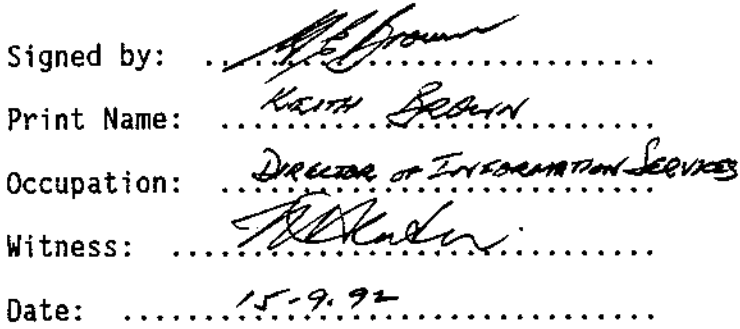 Signed by: K E Brown
Print Name: KEITH BROWN
Occupation: DIRECTOR OF INFORMATION SERVICES
Witness:
Date: 15-9.92